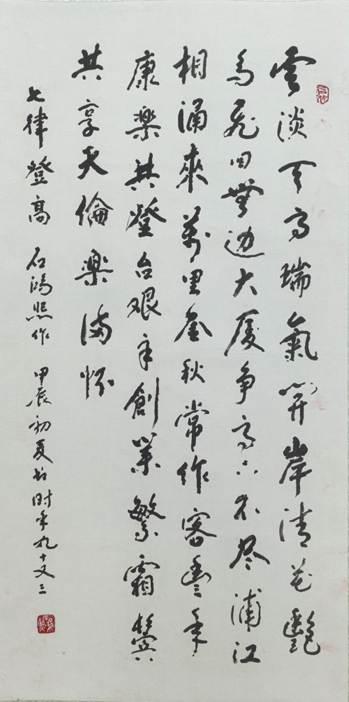 雲淡天高瑞氣開岸清花艷
鳥飛回無邊大厦争高下不尽浦江
相涌來萬里金秋常作客豐年
康樂共登台艰辛創業繁霜鬓
共享天倫樂满怀
七律登高 石鴻熙作 甲辰初夏书时年九十又三